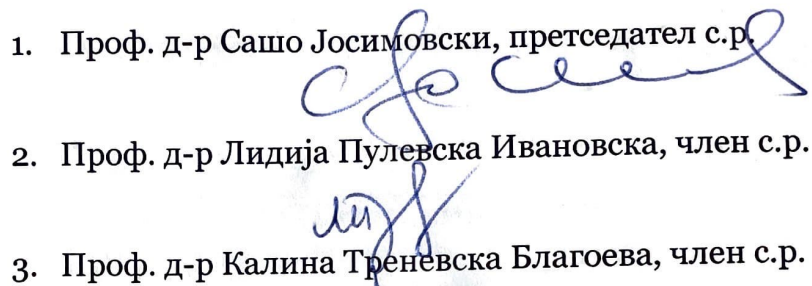 1. Проф. д-р Сашо Јосимовски, претседател с.р.
2. Проф. д-р Лидија Пулевска Ивановска, член с.р.
3. Проф. д-р Калина Треневска Благоева, член с.р.